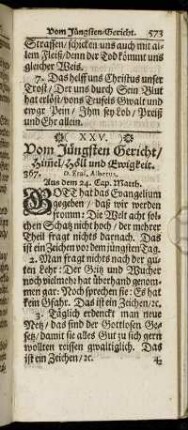 Vom Jüngsten Gericht. 573
Straffen/ schicken uns auch mit al-
lem Fleiß/ denn der Tod kömmt uns
gleicher Weis.
7. Das helff uns Christus unser
Trost/ Der uns durch Sein Blut
hat erlöst/ vons Teufels Gwalt und
ewgr Pein/ Ihm sey Lob/ Preiß
und Ehr allein.
XXV.
Vom Jüngsten Gericht/
Himel/ Höll und Ewigkeit.
367. D. Eras. Alberus.
Aus dem 24. Cap. Matth.
GOTT hat das Evangelium
gegeben/ daß wir werden
fromm: Die Welt acht sol-
chen Schatz nicht hoch/ der mehrer
Theil fragt nichts darnach. Das
ist ein Zeichen vor dem jüngsten Tag.
2. Man fragt nichts nach der gu-
ten Lehr: Der Geitz und Wucher
noch vielmehr hat überhand genom-
men gar. Noch sprechen sie: Es hat
kein Gfahr. Das ist ein Zeichen/ ꝛc.
3. Täglich erdenckt man neue
Netz/ das sind der Gottlosen Ge-
setz/ damit sie alles Gut zu sich gern
wollten reissen gwaltiglich. Das
ist ein Zeichen/ ꝛc.